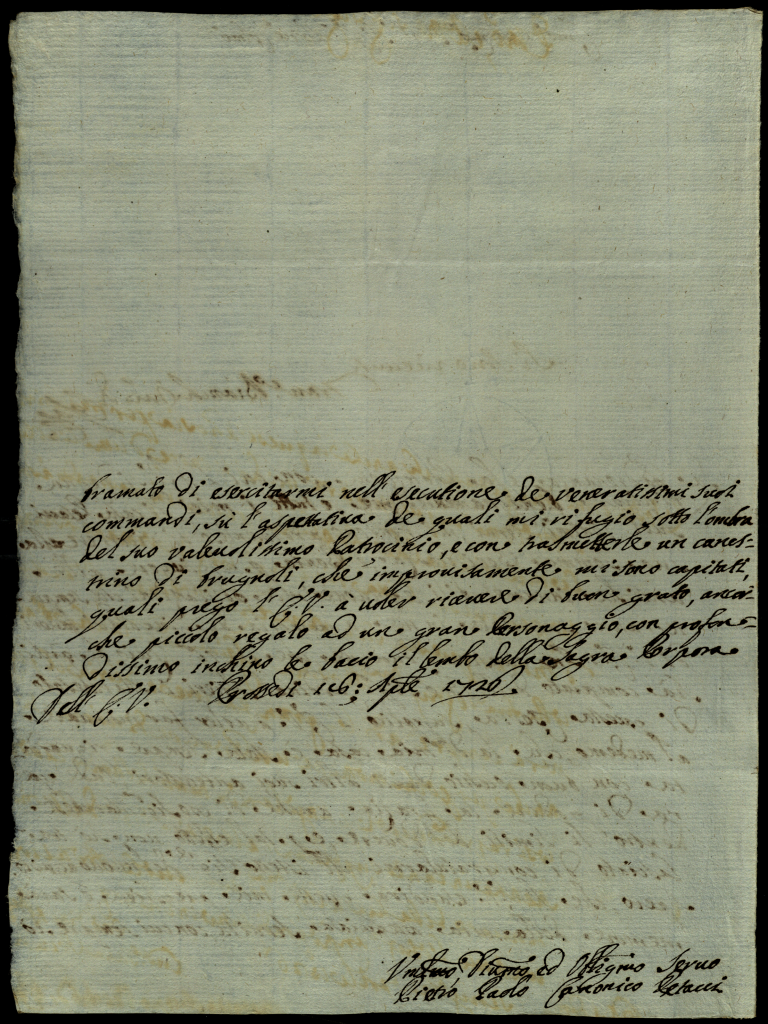 bramato di esercitarmi nell' esecutione de veneratissimi suoi
commandi, sù l'aspettativa de quali mi rifugio sotto l'ombra
del suo valeuolissimo Patrocinio, e con trasmetterle un canes-
trino di brugnoli, che improuisamente mi sono capitati,
quali prego l' E.V. à uoler riceuere di buon grato, ancor-
che piccolo regalo ad un gran Personaggio, con profon-
dissimo inchino le bacio il lembo della Sagra Porpora
Dell' E.V. Prossedi 16: 1726
Diumo ed Servo
Pietro Paolo Canonico Petacci